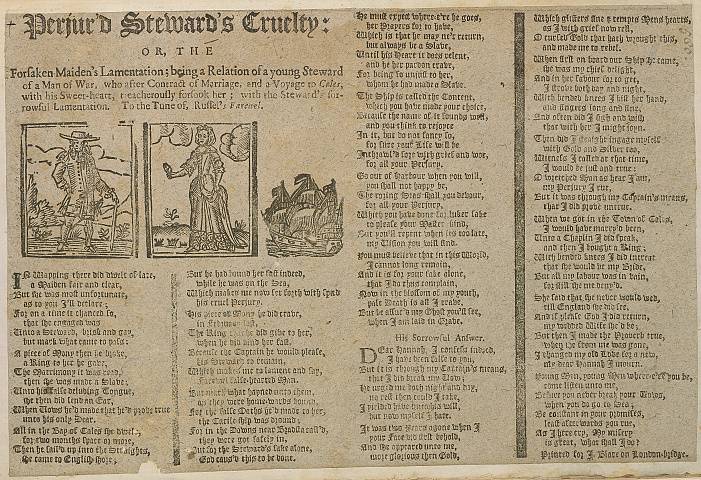 Perjur'd Steward's Cruelty:
OR, THE
Forsaken Maiden's Lamentation; being a Relation of a young Steward
of a Man of War, who after Contract of Marriage, and a Voyage to Cales,
with his Sweet-heart, treacherously forsook her; with the Steward's sor-
rowful Lamentation. To the Tune of, Russel's Farewel.
IN Wapping there did dwell of late,
a Maiden fair and clear,
But she was most unfortunate,
as to you I'll declare;
For on a time it chanced so,
that she engaged was
Unto a Steward, brisk and gay,
but mark what came to pass:
A piece of Mony then he broke,
a Ring to her he gave,
The Matrimony it was read,
then she was made a Slave,
Unto his false deluding Tongue,
she then did lend an Ear,
When Vows he'd made that he'd prove true
unto his only Dear.
All in the Bay of Cales she dwel,
for two months space or more,
Then he sail'd up into the Straights,
she came to English shore;
But he had bound her fast indeed,
while he was on the Sea,
Which makes me now set forth with speed
his cruel Perjury.
His piece of Mony he did crave,
The Ring that he did give to her,
when he did bind her fast.
Because the Captain he would please,
his Steward to remain,
Which makes me to lament and say,
Farewel false-hearted Man.
But mark what hapned unto them,
as they were home-wards bound,
For the false Oaths he'd made to her,
the Ship was
For in the Downs near
they were got safely in,
But for the Steward's sake alone,
God caus'd this to be done.
He must expect where-e're he goes,
her Prayers for to have,
Which is that he may ne'r return,
but always be a Slave,
Until his Heart it does relent,
and he her pardon crave,
For being so unjust to her,
whom he had made a Slave.
The Ship is called the Content,
which you have made your choice,
Because the name of it sounds well,
and you think to rejoyce
In it, but do not fancy so,
for sure your Life will be
Inthrawl'd for e'er with grief and woe,
for all your Perjury.
Go out of Harbour when you will,
you shall not happy be,
The roring Seas shall you devour,
for all your Perjury,
Which you have done for lucre sake
to please your Master kind,
But you'll repent when 'tis too late,
my Vision you will find.
You must believe that in this World,
I cannot long remain,
And it is for your sake alone,
that I do this complain,
Now in the blossom of my youth,
pale Death is all I crave,
But be assur'd my Ghost you'll see,
when I am laid in Grave.
His Sorrowful Answer.
DEar Hannah, I confess indeed,
I have been false to you,
But it is through my Captain's means,
that I did break my Vow;
He urged me both night and day,
no rest then could I take,
I yielded unto his will,
but now myself I hate.
It was two years agone when I
your Face did first behold,
And she appeared unto me,
more glorious then Gold,
Which glisters fine & tempts Mens hearts,
as I with grief now tell,
O cursed Gold that hath wrought this,
and made me to rebel.
When first on board our Ship she came,
she was my chief delight,
And in her favour for to get,
I strove both day and night,
With bended knees I kist her hand,
and fingers long and fine,
And often did I sigh and wish
that with her I might joyn.
Then did I straight ingage myself
with Gold and Silver too,
Witness I called at that time,
I would be just and true:
O wretched Man as here I am,
my Perjury I rue,
But it was through my Captain's means,
that I did prove untrue.
When we got in the Town of Cales,
I would have marry'd been,
Unto a Chaplin I did speak,
and then I bought a Ring;
With bended knees I did intreat
that she would be my Bride,
But all my labour was in vain,
for still she me deny'd.
She said that she never would wed,
till England she did see,
And if please God I did return,
my wedded Wife she'd be;
But then I made the Proverb true,
when the storm me was gone,
I changed my old Love for a new,
my dear Hannah I mourn.
Young Men, young Men where-e're you be,
come listen unto me,
Be sure you never break your Vows,
when you do go to Sea;
Be constant in your promises,
least afterwards you rue,
As I here cry, My misery
is great, what shall I do?
Printed for J. Blare on London-bridge.